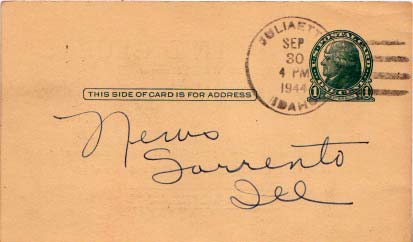 JULIAETTA
SEP
30
4 PM
1944
IDAHO
U.S. POSTAL CARD
1 1
THIS SIDE OF CARD IS FOR ADDRESS
News
Sorrento
Ill